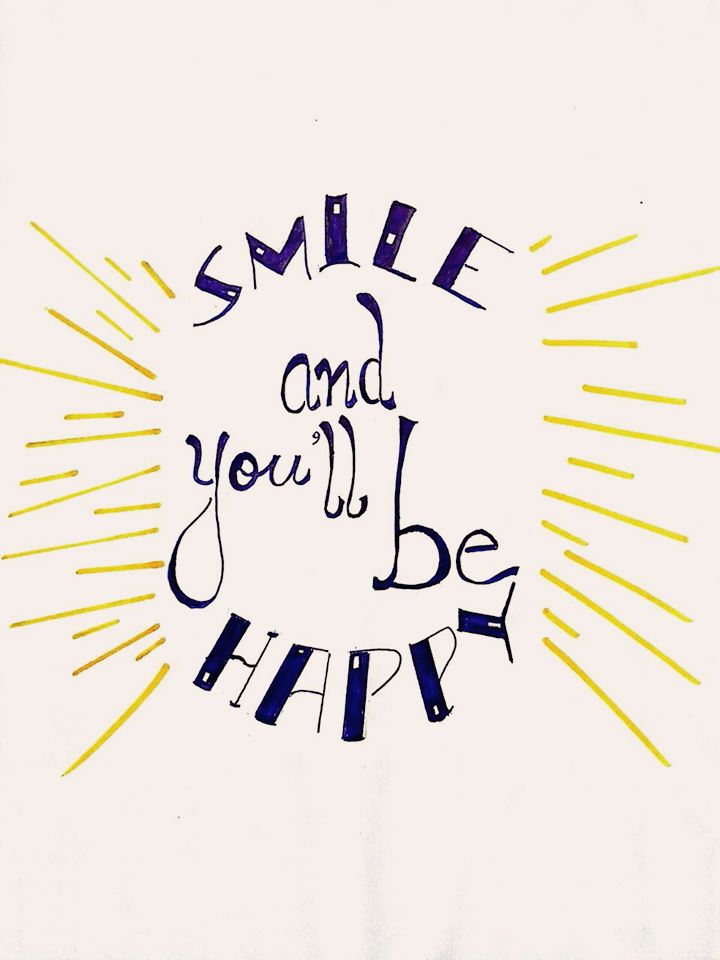 SMILE
and
you'll be
HAPPY